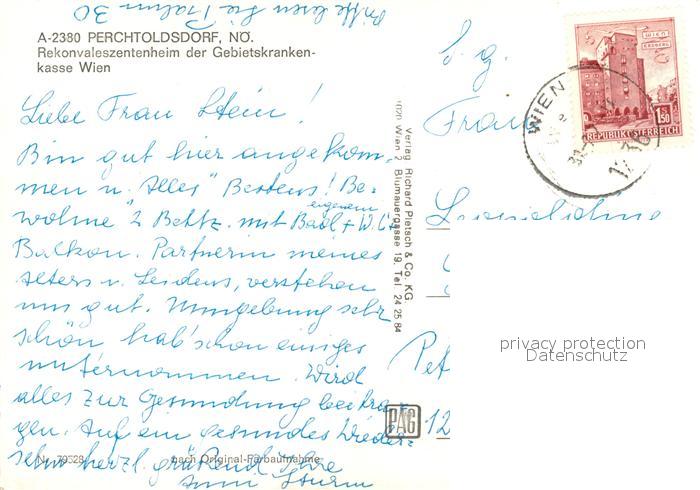 A-2380 PERCHTOLDSDORF, NÖ.
Rekonvaleszentenheim der Gebietskranken-
kasse Wien
Liebe Frau Stein!
Bin gut hier angekom-
men u. "Alles" Bestens! Be-
wohne 2 Bettz. mit eigenem Bad + W.C. +
Balkon. Partnerin meines
Alters u. Leidens, verstehen
uns gut. Umgebung sehr
schön hab' schon einiges
unternommen. Wird
alles zur Gesundung beitra-
gen. Auf ein gesundes Wieder-
sehn herzl. grüßend Ihre
Sturm
Nr. 79328 nach Original-Farbaufnahme
Verlag Richard Pietsch & Co. KG.
1020 Wien 2 Blumauergasse 19, Tel. 24 25 84
PAG
S. g.
Frau
Leopoldine
12
WIEN
ERDBERG
1.50
REPUBLIK ÖSTERREICH
WIEN
privacy protection
Datenschutz